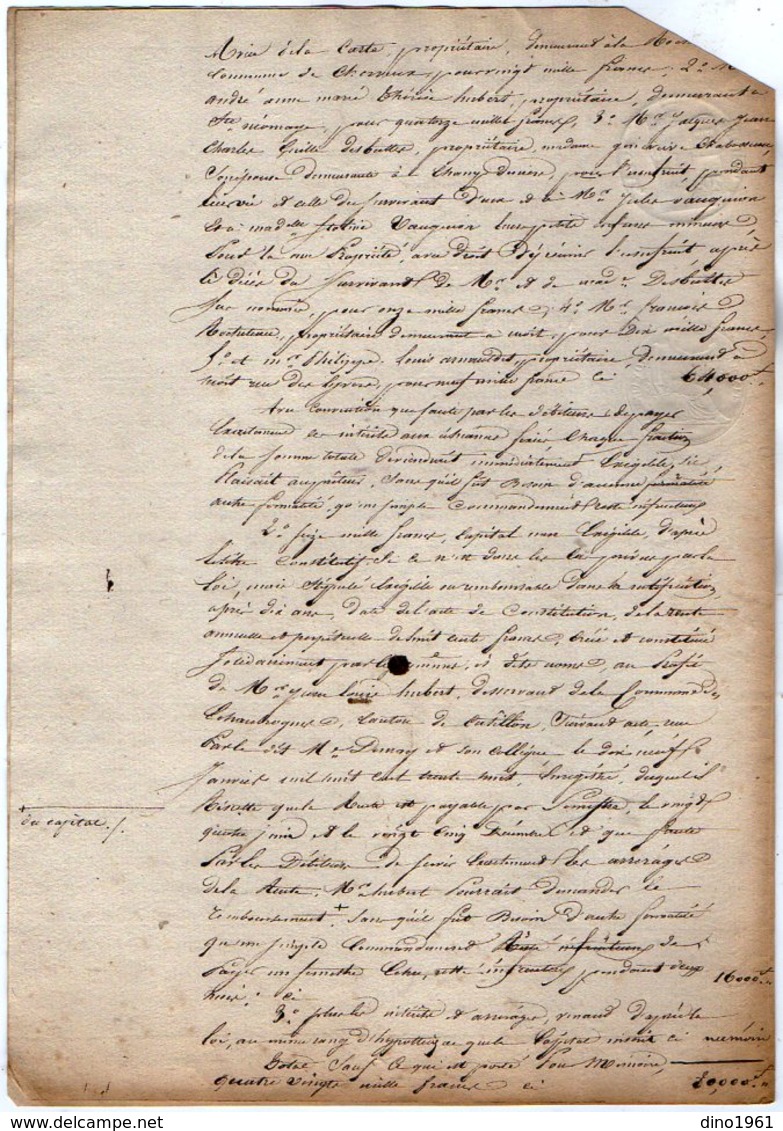 de la Coste, propriétaire, demeurant à la
Commune de Cherveux, pour vingt mille francs; 2.o
andré anne marie Thérèse hubert, propriétaire, demeurant à
Ste néomaye, pour quatorze mille francs, 3.o Mr. Jacques Jean
Charles desbuttes, propriétaire, madame
Son épouse demeurants à pour l'usufruit, pendant
leur vie et celle du Survivant d'eux et à Mr. Jules Vauguion
et à madelle Vauguion leurs petits enfans mineurs
Pour la nue Propriété, avec droit d'y réunir l'usufruit après
le décès du Survivant de Mr. et de made. Desbuttes
Sus nommés, pour onze mille francs; 4.o Mr. françois
propriétaire demeurant à niort, pour Dix mille francs,
5.o et mr. Philippe Louis arnauldet, propriétaire, demeurant à
niort rue des pour neuf mille francs ci 64,000f.
Avec Convention que faute par les débiteurs de payer
Exactement les intérêts aux échéances fixées Chaque fraction
de la Somme totale deviendrait immédiatement Exigible, si
Plaisait au prêteur, Sans qu'il fut Besoin d'aucune
autre formalité, qu'un simple Commandement resté infructueux
2.o Seize mille francs, Capital non Exigible, d'après
le titre Constitutif Si ce n'est dans les Cas prévus par la
Loi, mais Stipulé Exigible ou remboursable dans la ratification,
après dix ans, date de l'acte de Constitution, de la rente
annuelle et perpétuelle de huit cents francs, Créée et constituée
Solidairement par les mêmes, ès dits noms, au Profit
de Mr. Louis hubert, desservant de la Commune de
Canton de Suivant acte reçu
Par le dit Me. et son Collègue le dix neuf
Janvier mil huit cent trente huit, Enregistré, duquel il
Résulte que la Rente est payable par Semestre, le vingt
quatre juin et le vingt cinq Décembre et que faute
Par les Débiteurs de Servir Exactement les arrérages
de la Rente, Mr. hubert Pourrait demander le
remboursement + Sans qu'il fut Besoin d'autre formalité
du capital./.
qu'un simple Commandement Resté infructueux de
Payer un semestre Echu, resté infructueux pendant deux
mois, ci 16000f.
3.o plus les intérêts et arrérages, venant d'après la
loi, au même rang d'hypothèque que le Capital inscrit ci mémoire
Total Sauf Ce qui est porté Pour Mémoire,
quatre vingts mille francs ci 80,000f.
dino1961